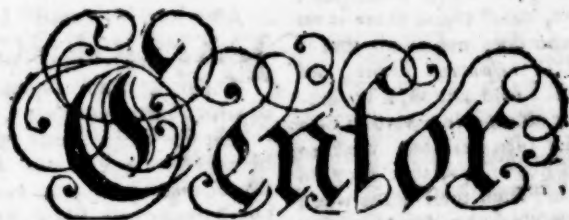 Cenſor